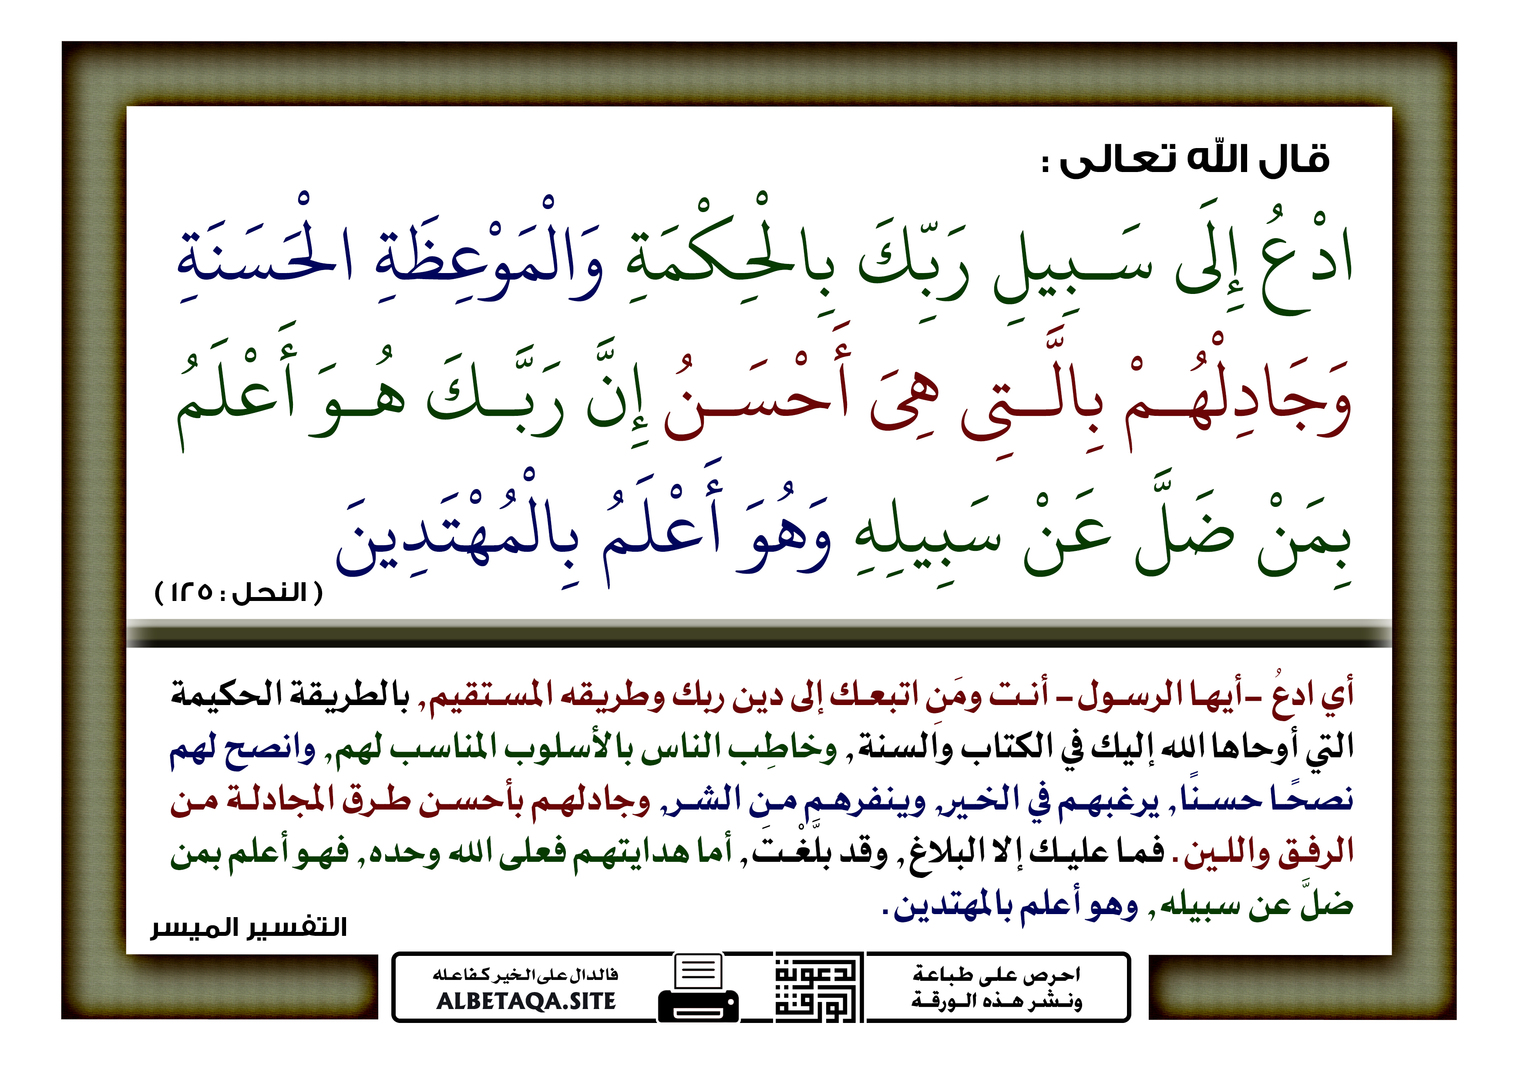 قال الله تعالى :
ادْعُ إِلَى سَبِيلِ رَبِّكَ بِالْحِكْمَةِ وَالْمَوْعِظَةِ الْحَسَنَةِ
وَجَادِلْهُمْ بِالَّتِي هِيَ أَحْسَنُ إِنَّ رَبَّكَ هُوَ أَعْلَمُ
بِمَنْ ضَلَّ عَنْ سَبِيلِهِ وَهُوَ أَعْلَمُ بِالْمُهْتَدِينَ
( النحل : ١٢٥ )
أي ادعُ -أيها الرسول- أنت ومَنِ اتبعك إلى دين ربك وطريقه المستقيم, بالطريقة الحكيمة
التي أوحاها الله إليك في الكتاب والسنة, وخاطِب الناس بالأسلوب المناسب لهم, وانصح لهم
نصحًا حسنًا, يرغبهم في الخير, وينفرهم من الشر, وجادلهم بأحسن طرق المجادلة من
الرفق واللين. فما عليك إلا البلاغ, وقد بلَّغْتَ, أما هدايتهم فعلى الله وحده, فهو أعلم بمن
ضلَّ عن سبيله, وهو أعلم بالمهتدين.
التفسير الميسر
احرص على طباعة
ونشر هذه الورقة
الدعوية
الورقة
فالدال على الخير كفاعله
ALBETAQA.SITE